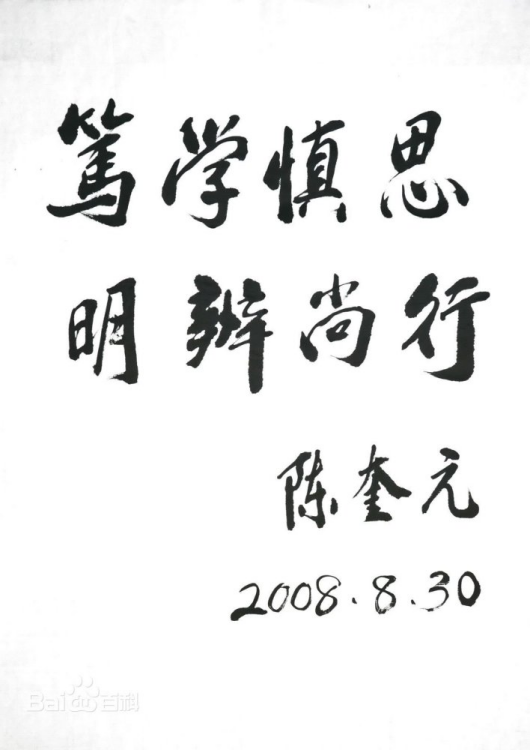 笃学慎思
明辨尚行
陈奎元
2008.8.30
Bai百科